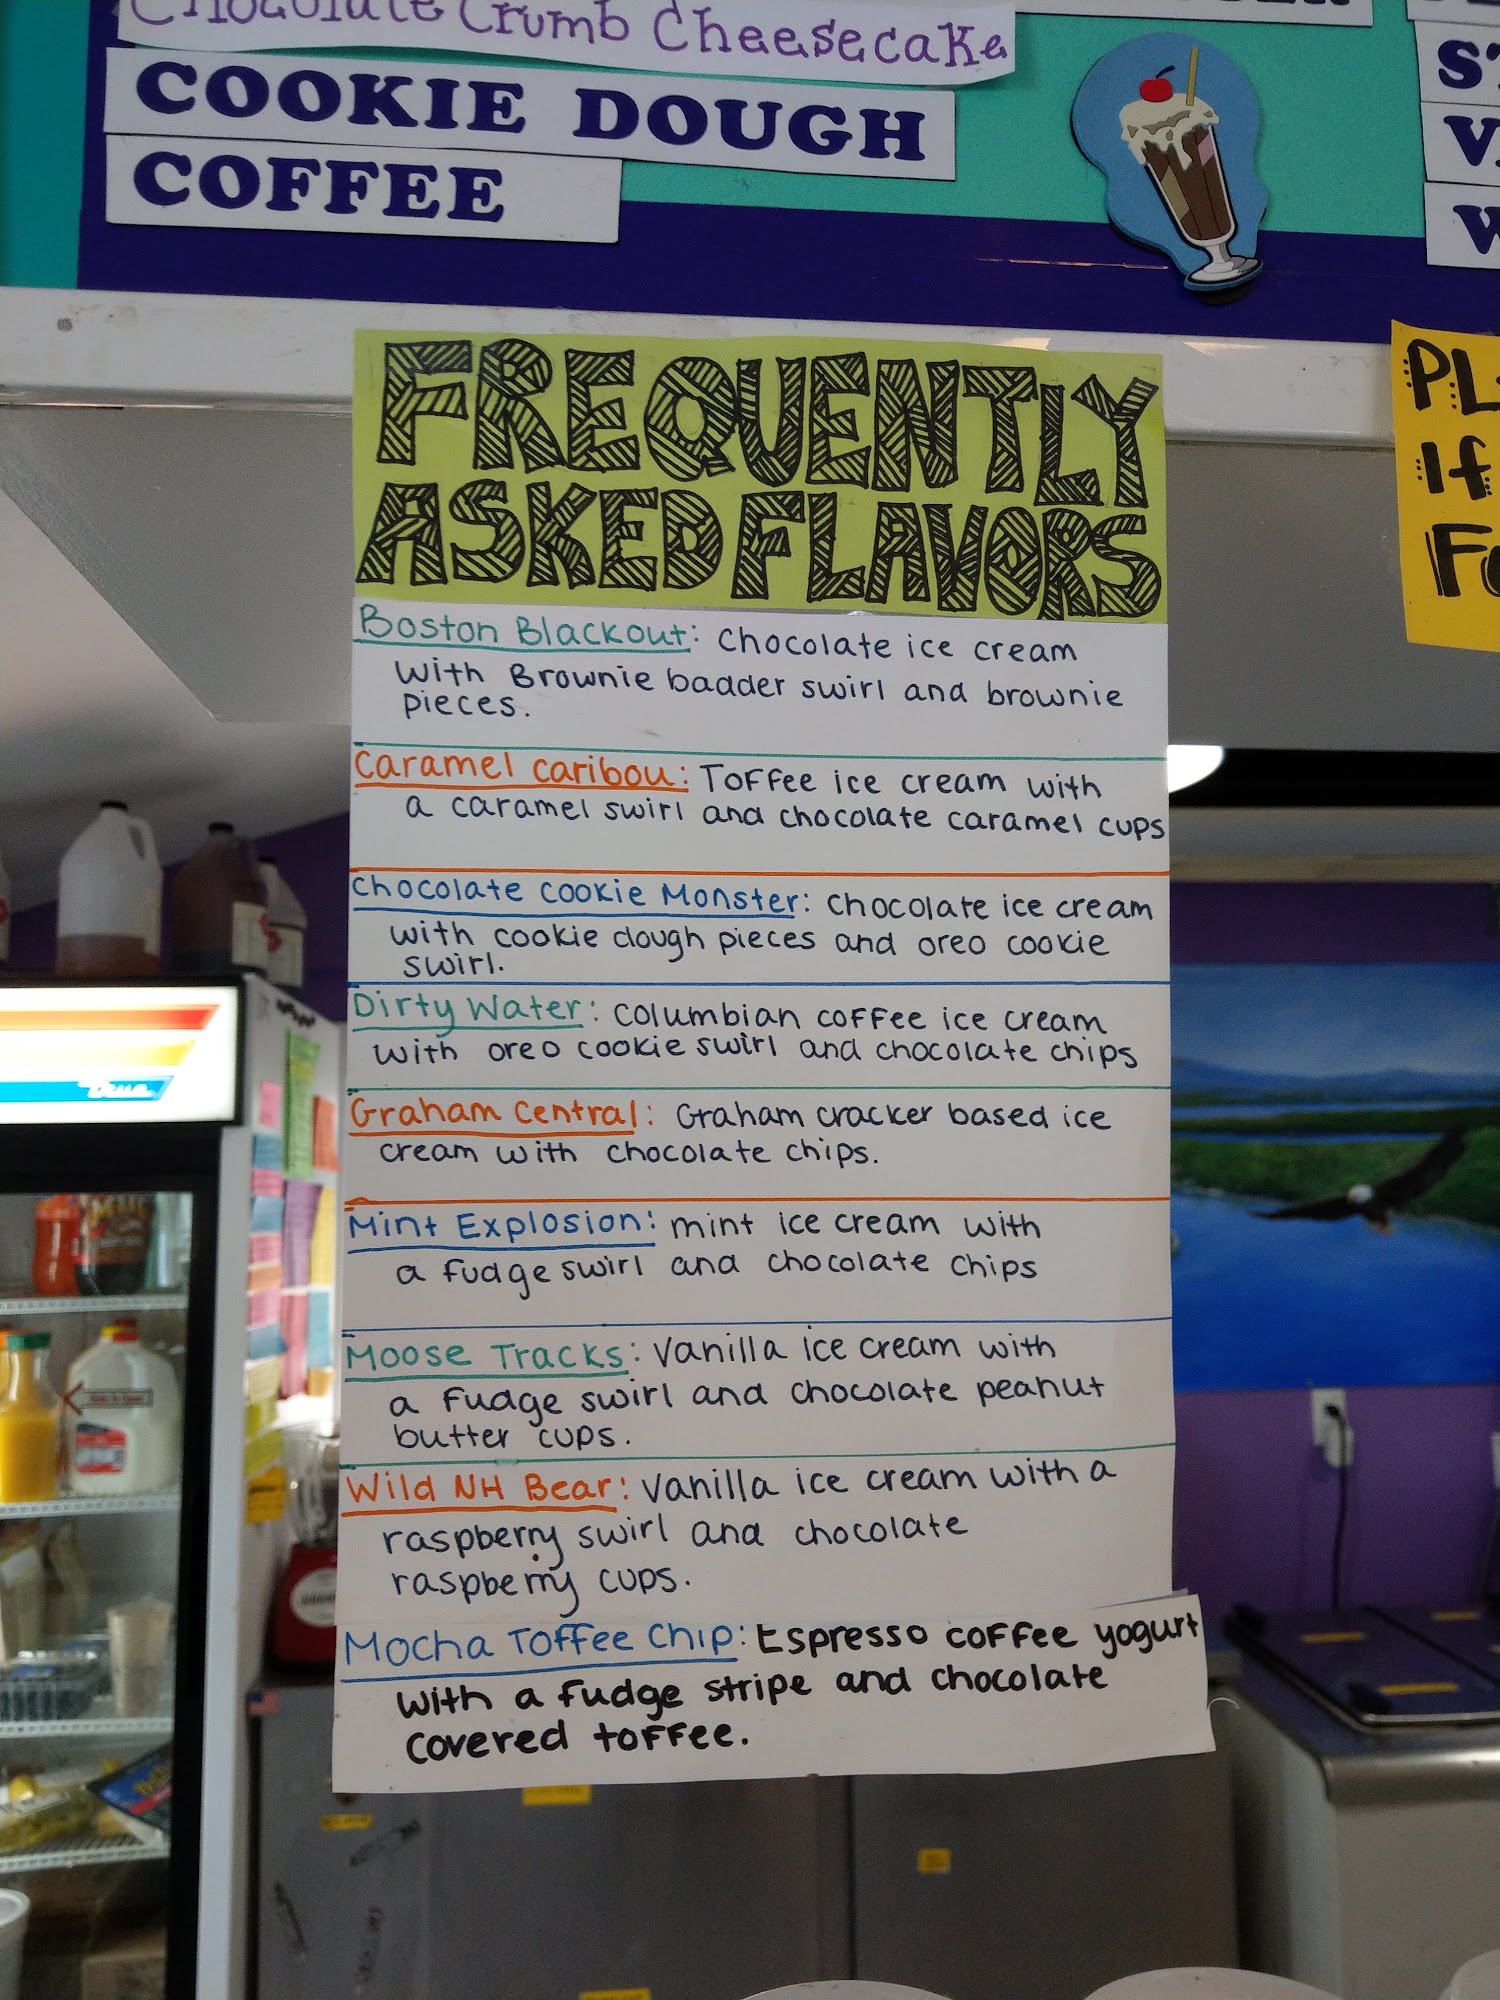 Chocolate Crumb Cheesecake
COOKIE DOUGH
COFFEE
FREQUENTLY
ASKED FLAVORS
Boston Blackout: Chocolate ice cream
with Brownie badder swirl and brownie
pieces.
Caramel Caribou: Toffee ice cream with
a caramel swirl and chocolate caramel cups
Chocolate Cookie Monster: Chocolate ice cream
with cookie dough pieces and oreo cookie
swirl.
Dirty Water: Columbian coffee ice cream
with oreo cookie swirl and chocolate chips
Graham Central: Graham cracker based ice
cream with chocolate chips.
Mint Explosion: mint ice cream with
a fudge swirl and chocolate chips
Moose Tracks: Vanilla ice cream with
a fudge swirl and chocolate peanut
butter cups.
Wild NH Bear: Vanilla ice cream with a
raspberry swirl and chocolate
raspberry cups.
Mocha Toffee Chip: Espresso coffee yogurt
with a fudge stripe and chocolate
covered toffee.
If